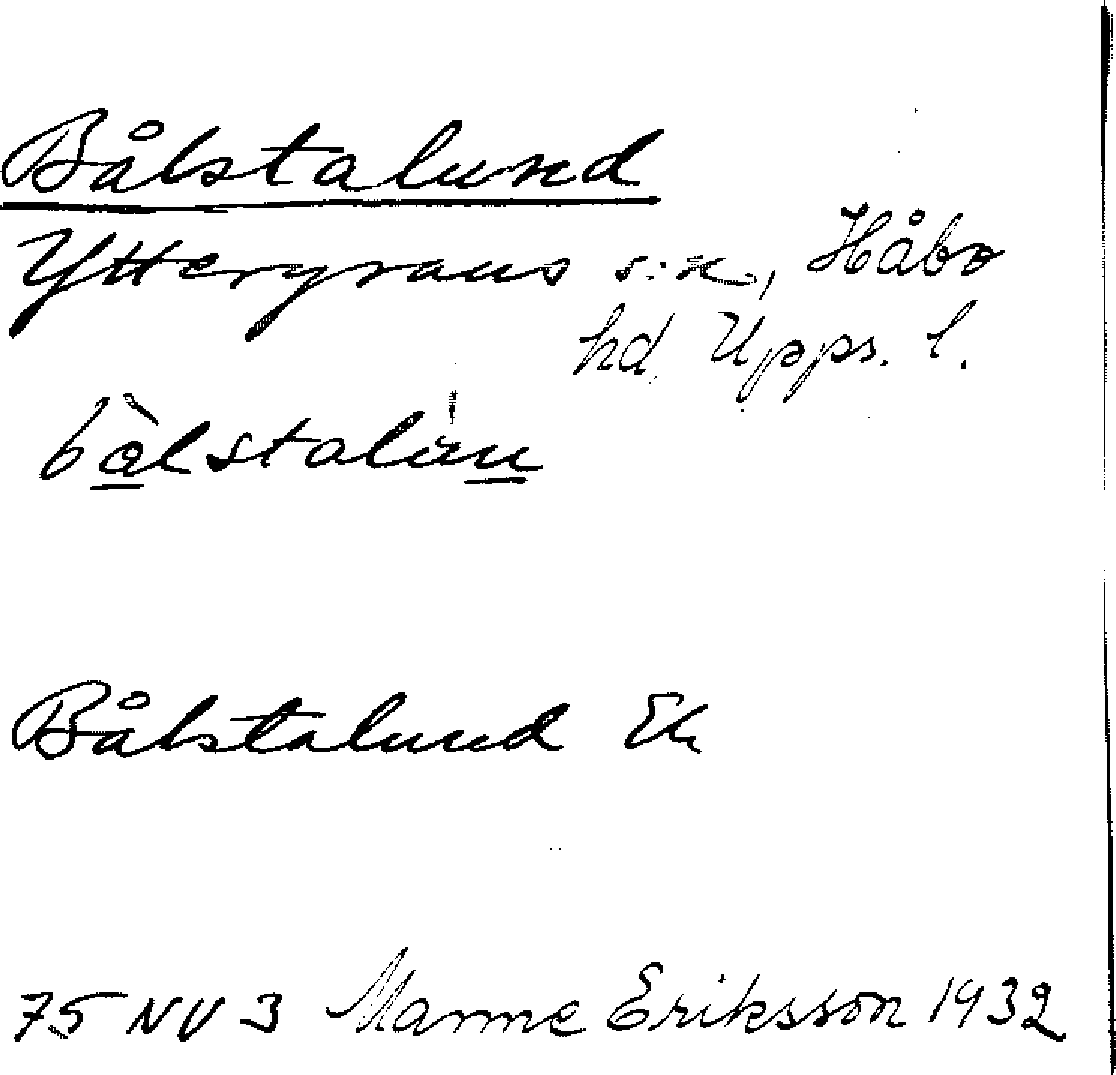 Bålstalund
Yttergrans s:n, Håbo
hd, Upps. l.
Bålstalund Ek
75 NV 3 Manne Eriksson 1932